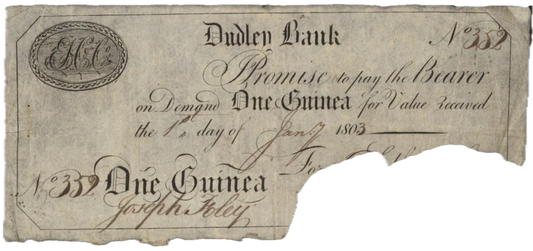 Dudley Bank No 352
I Promise to pay the Bearer
on Demand One Guinea for Value received
the 1st day of Jany 1803
For
No 352 One Guinea
Joseph Foley